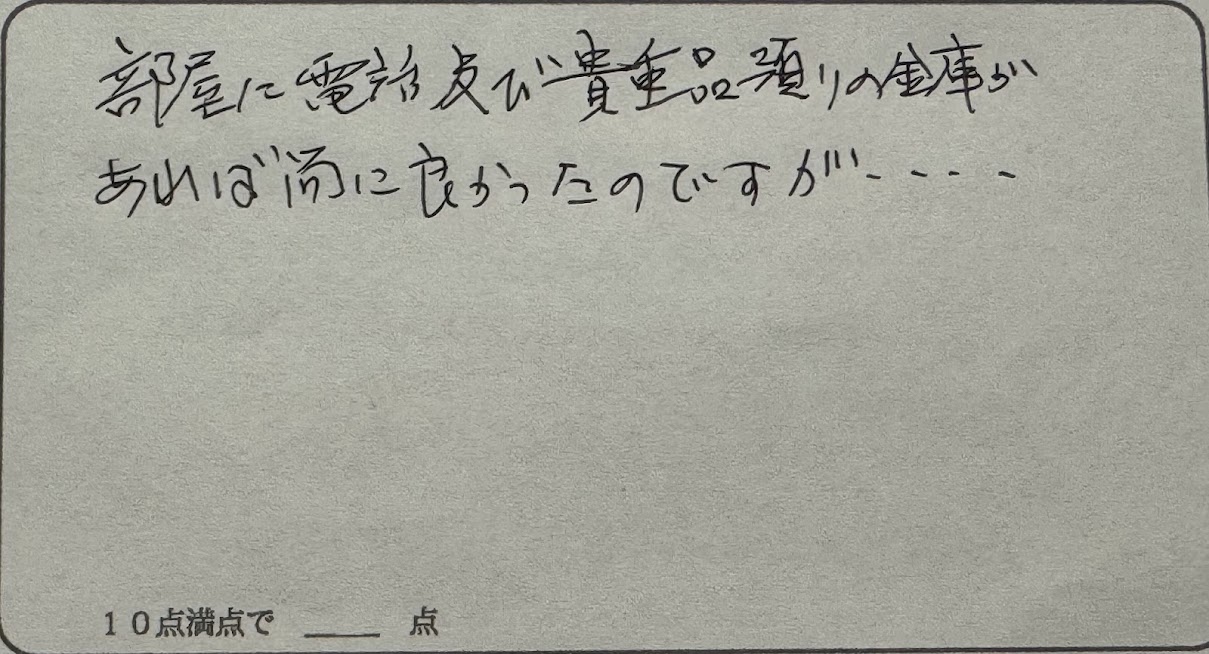 部屋に電話及び貴重品預りの金庫が
あれば尚に良かったのですが・・・・
10点満点で ____ 点